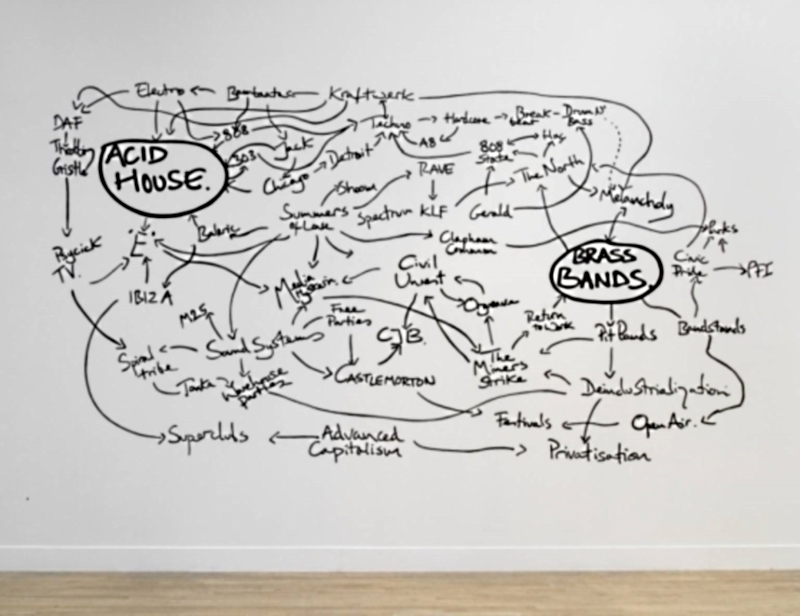 Electro
Bambaataa
Kraftwerk
DAF
Throbbing
Gristle
ACID
HOUSE.
808
303
Jack
Chicago
Detroit
Techno
Hardcore
Break-
beat
Drum N'
Bass
A8
808
State
Hag
RAVE
The North
Melancholy
Shoom
Summers
of Love
Spectrum
KLF
Gerald
Clapham
Common
Balaric
'E'
Psychick
TV.
IBIZA
Media
Hysteria
Civil
Unrest
Orgreave
BRASS
BANDS.
Civic
Pride
Parks
PFI
M25
Free
Parties
C.J.B.
Return
to Work
Pit Bands
Bandstands
Spiral
tribe
Sound Systems
Tonka
Warehouse
parties
CASTLEMORTON
The
Miners
Strike
Deindustrialization
Festivals
Open Air.
Superclubs
Advanced
Capitalism
Privatisation